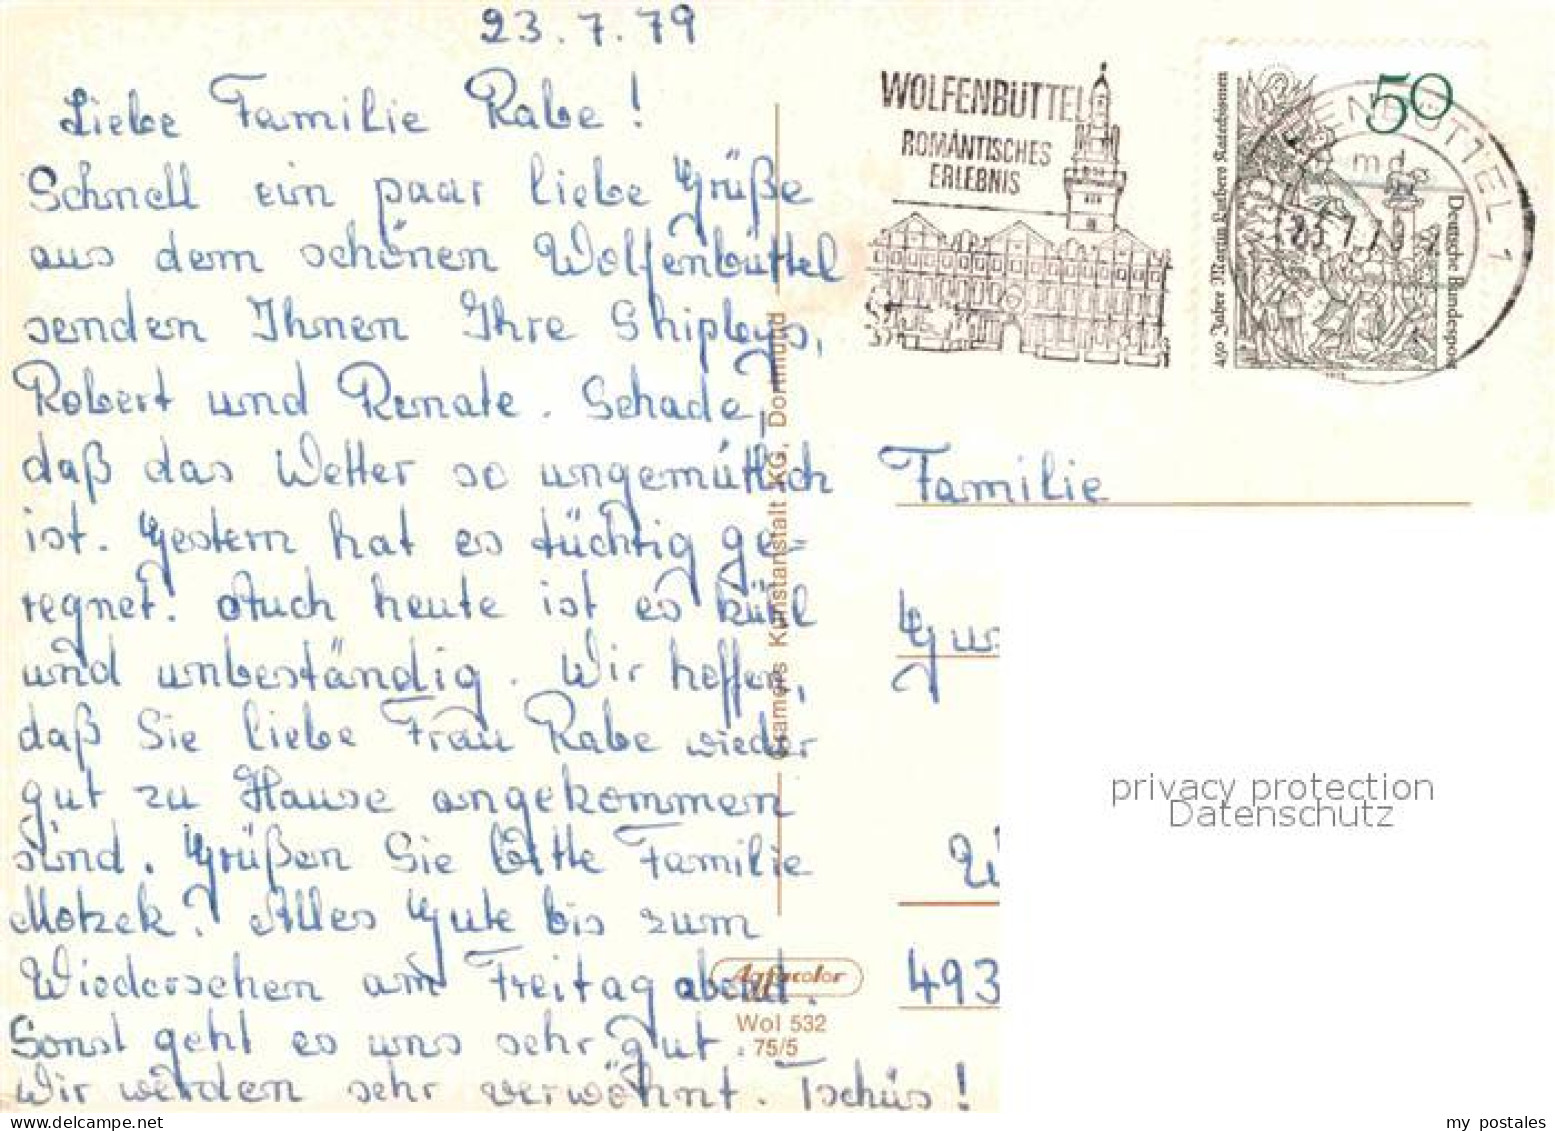 23.7.79
Liebe Familie Rabe!
Schnell ein paar liebe Grüße
aus dem schönen Wolfenbüttel
senden Ihnen Ihre Shipleys,
Robert und Renate. Schade,
daß das Wetter so ungemütlich
ist. Gestern hat es tüchtig ge=
regnet. Auch heute ist es kühl
und unbeständig. Wir hoffen,
daß Sie liebe Frau Rabe wieder
gut zu Hause angekommen
sind. Grüßen Sie bitte Familie
Motzek? Alles Gute bis zum
Wiedersehen am Freitag abend.
Sonst geht es uns sehr gut
Wir werden sehr verwöhnt. Tschüs!
Cramers Kunstanstalt KG, Dortmund
Agfacolor
Wol 532
75/5
WOLFENBÜTTEL
ROMANTISCHES
ERLEBNIS
50
450 Jahre Martin Luthers Katechismen
Deutsche Bundespost
ENBÜTTEL 1
md
23.7.79
Familie
493
privacy protection
Datenschutz
my postales